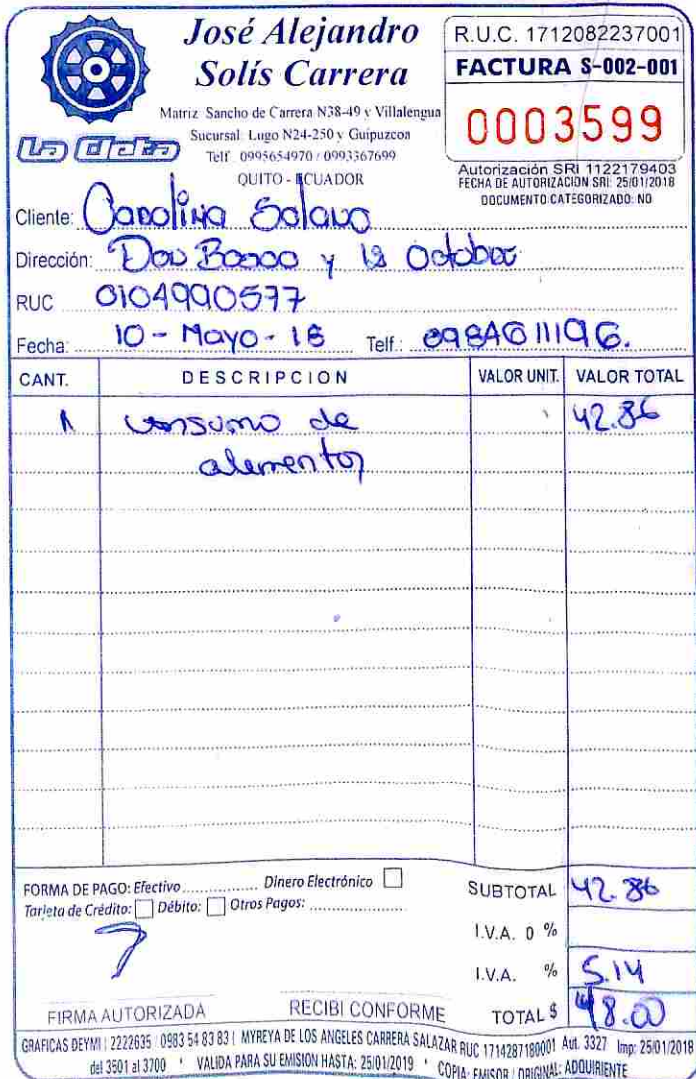 José Alejandro
Solís Carrera
Matriz Sancho de Carrera N38-49 y Villalengua
Sucursal: Lugo N24-250 y Guipuzcoa
Telf 0995654970 / 0993367699
QUITO - ECUADOR
La Cleta
R.U.C. 1712082237001
FACTURA S-002-001
0003599
Autorización SRI 1122179403
FECHA DE AUTORIZACION SRI: 25/01/2018
DOCUMENTO CATEGORIZADO: NO
Cliente: Carolina Solano
Dirección: Don Bosco y 12 Octubre
RUC 0104990577
Fecha: 10 - Mayo - 18 Telf.: 0984611196.
CANT. DESCRIPCION VALOR UNIT. VALOR TOTAL
1 consumo de 42.86
alimentos
FORMA DE PAGO: Efectivo Dinero Electrónico
Tarjeta de Crédito: Débito: Otros Pagos:
SUBTOTAL 42.86
I.V.A. 0 %
I.V.A. % 5.14
TOTAL $ 48.00
FIRMA AUTORIZADA RECIBI CONFORME
GRAFICAS DEYMI | 2222635 / 0983 54 83 83 | MYREYA DE LOS ANGELES CARRERA SALAZAR RUC 1714287180001 Aut. 3327 Imp: 25/01/2018
del 3501 al 3700 * VALIDA PARA SU EMISION HASTA: 25/01/2019 * COPIA: EMISOR / ORIGINAL: ADQUIRIENTE